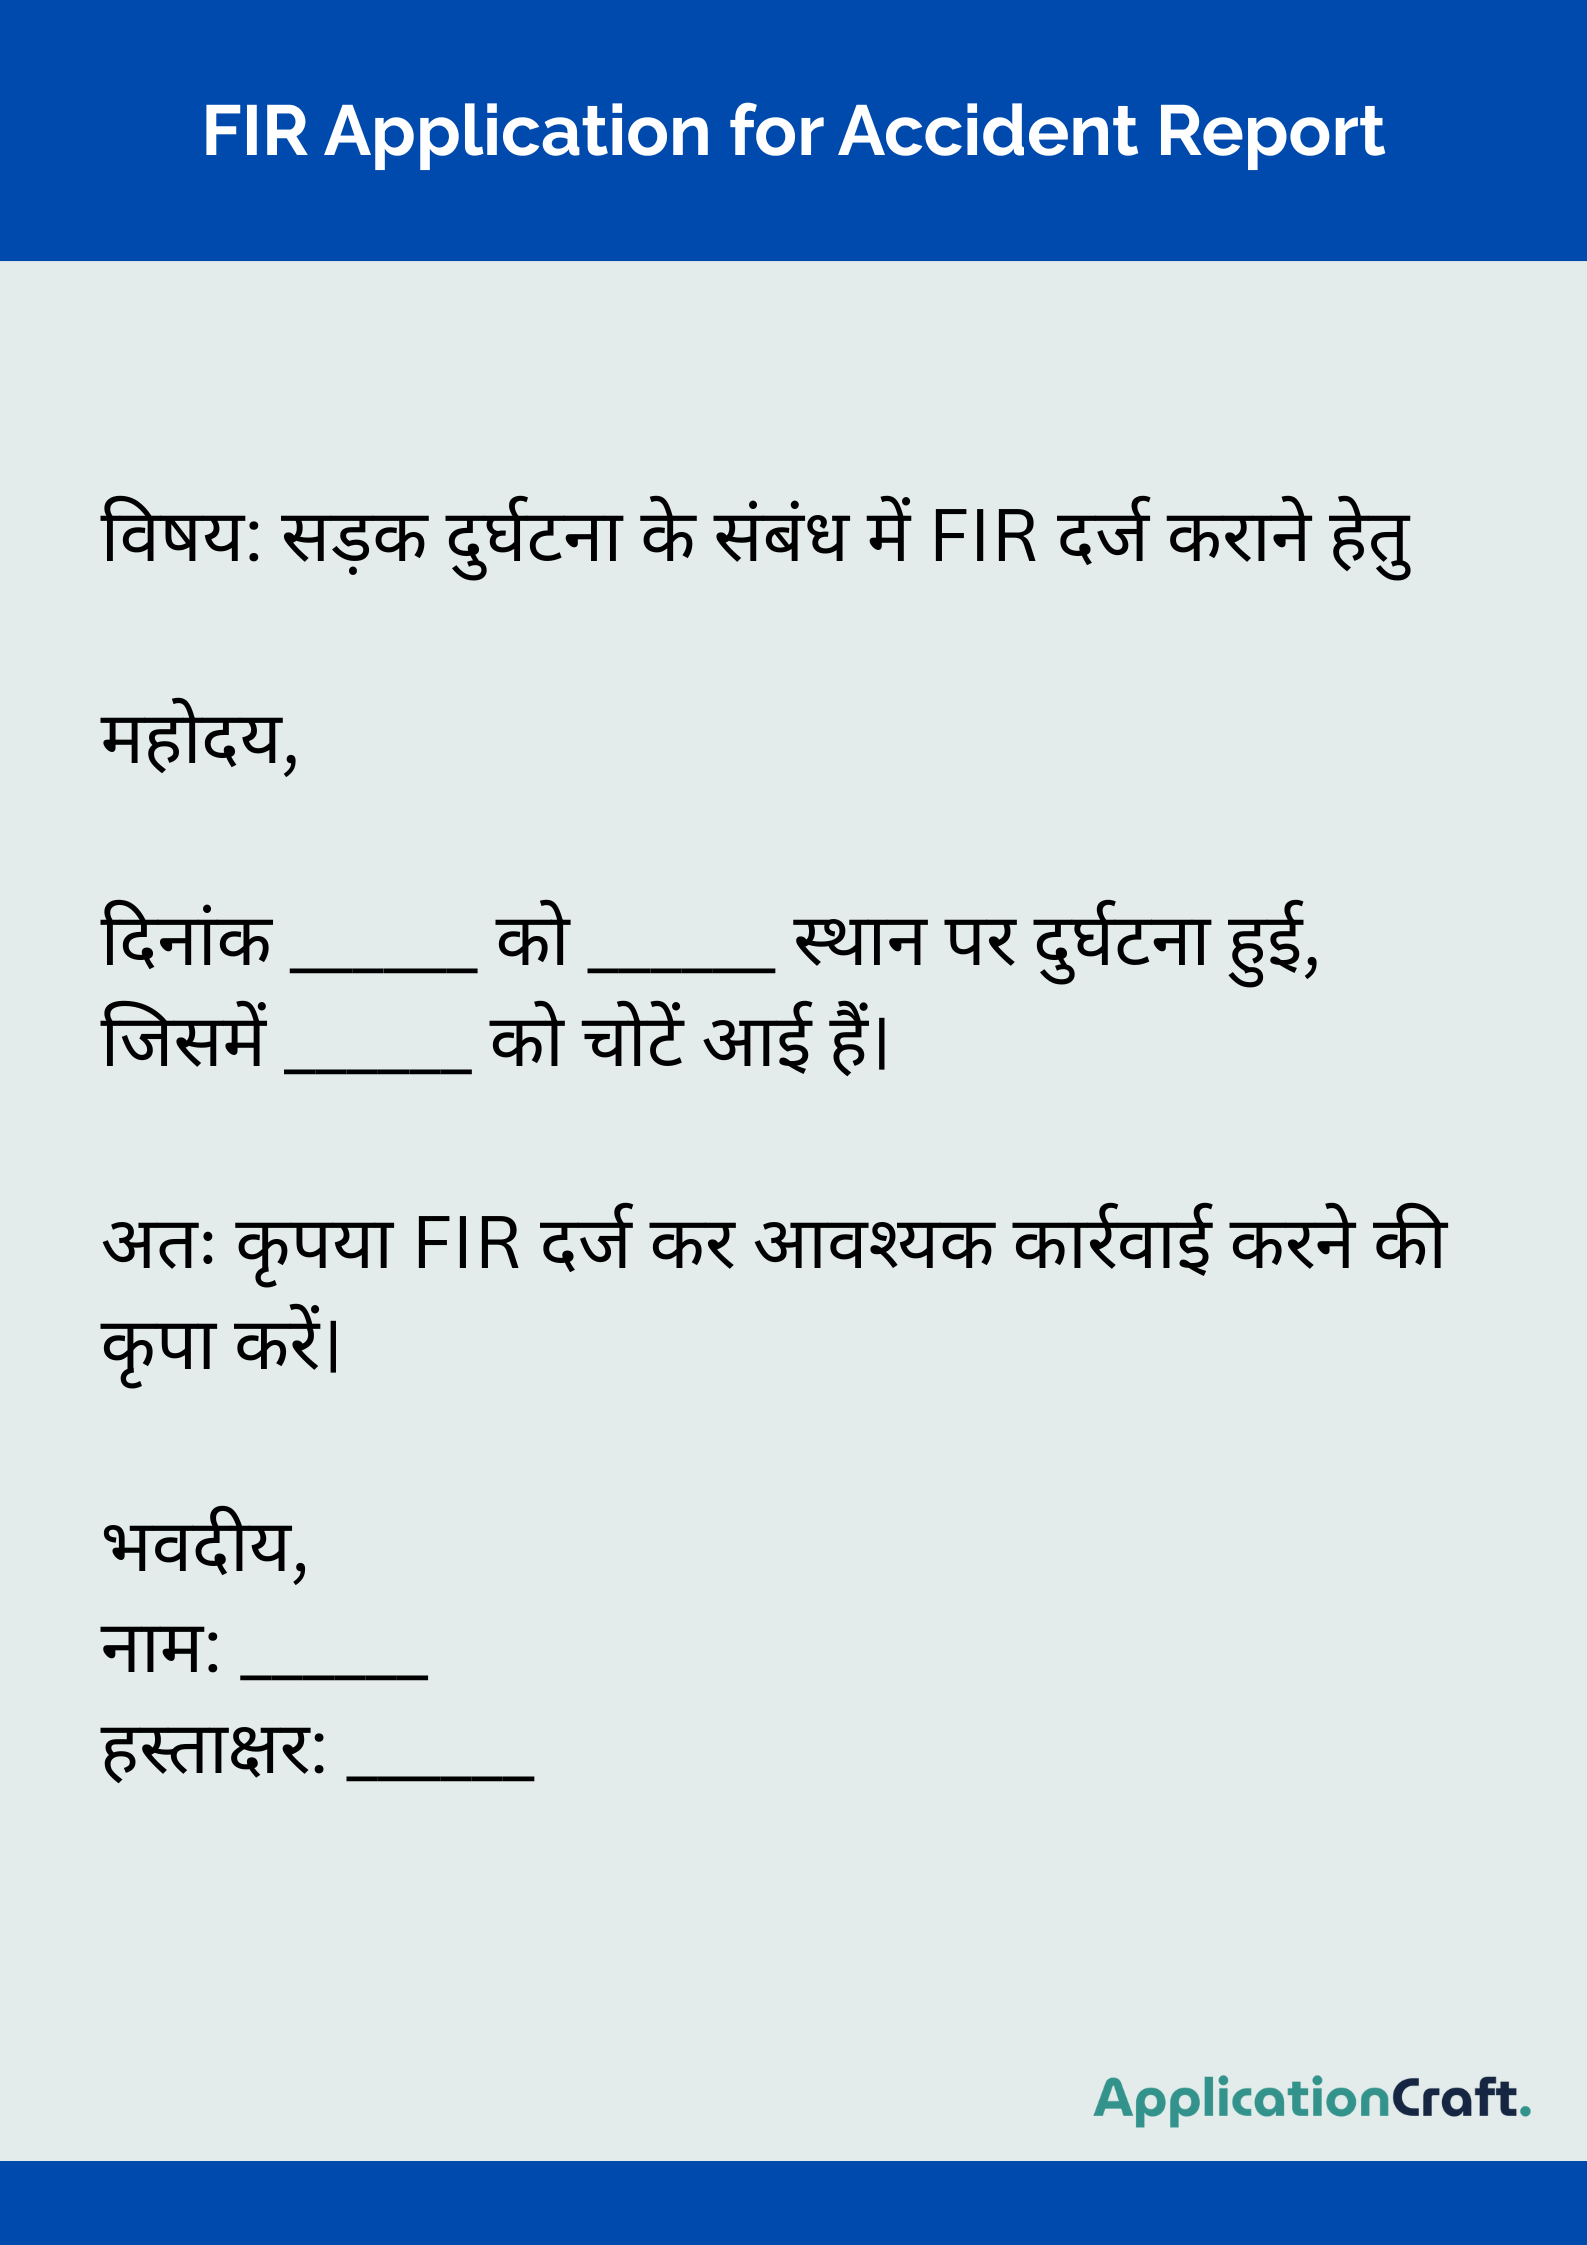 FIR Application for Accident Report
विषय: सड़क दुर्घटना के संबंध में FIR दर्ज कराने हेतु
महोदय,
दिनांक ______ को ______ स्थान पर दुर्घटना हुई,
जिसमें ______ को चोटें आई हैं।
अतः कृपया FIR दर्ज कर आवश्यक कार्रवाई करने की
कृपा करें।
भवदीय,
नाम: ______
हस्ताक्षर: ______
ApplicationCraft.